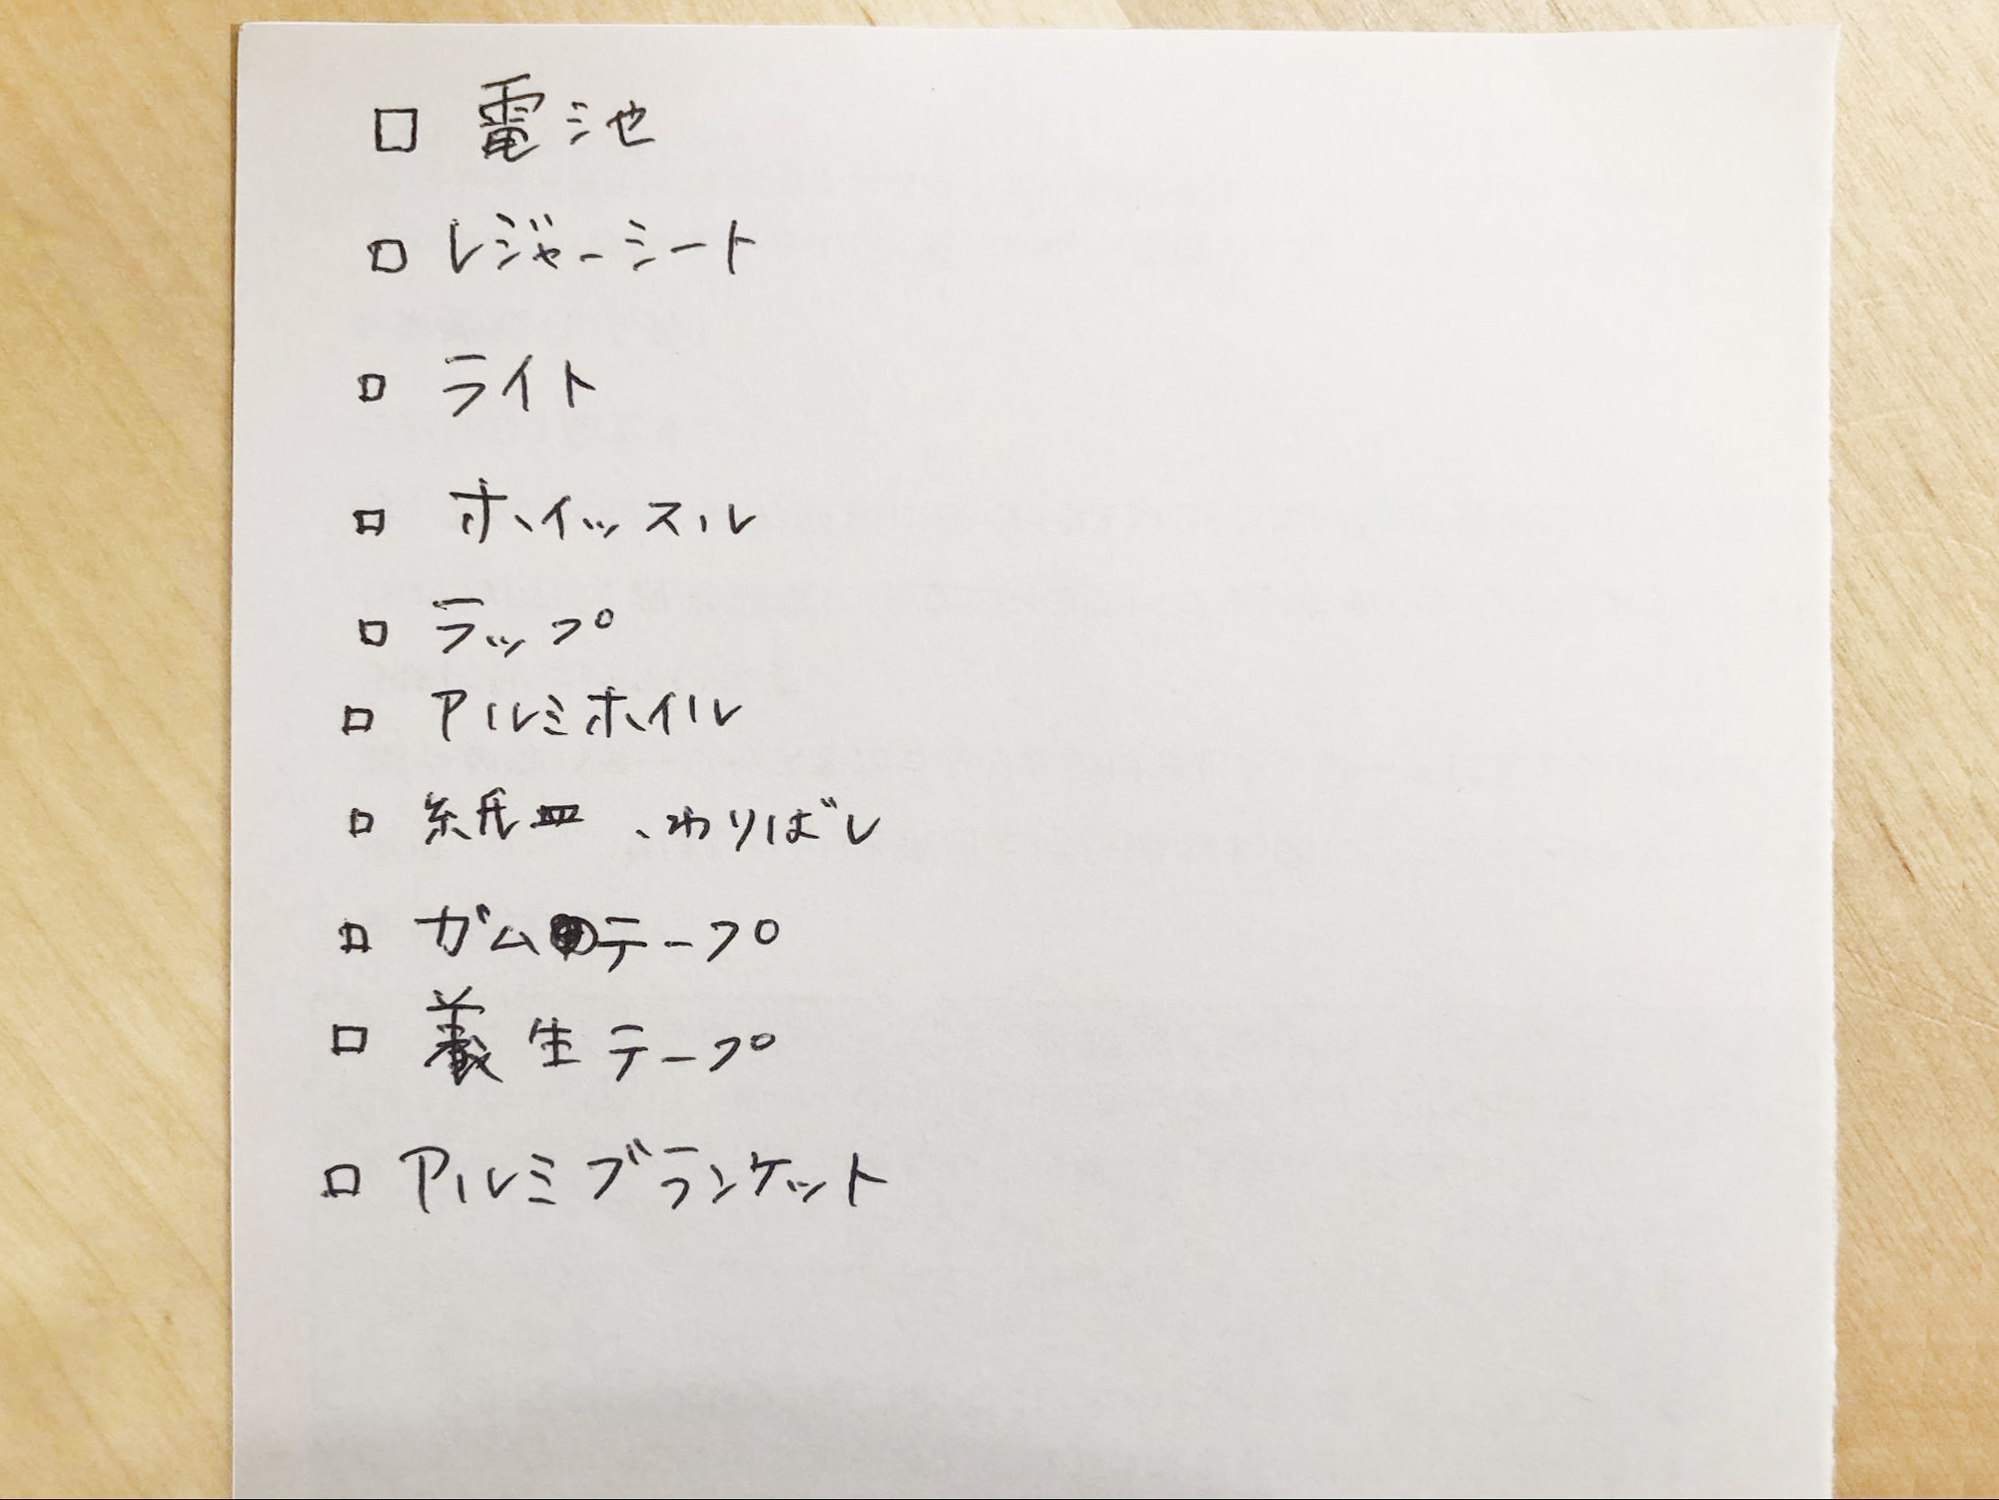 □ 電池
□ レジャーシート
□ ライト
□ ホイッスル
□ ラップ
□ アルミホイル
□ 紙皿、わりばし
□ ガムテープ
□ 養生テープ
□ アルミブランケット